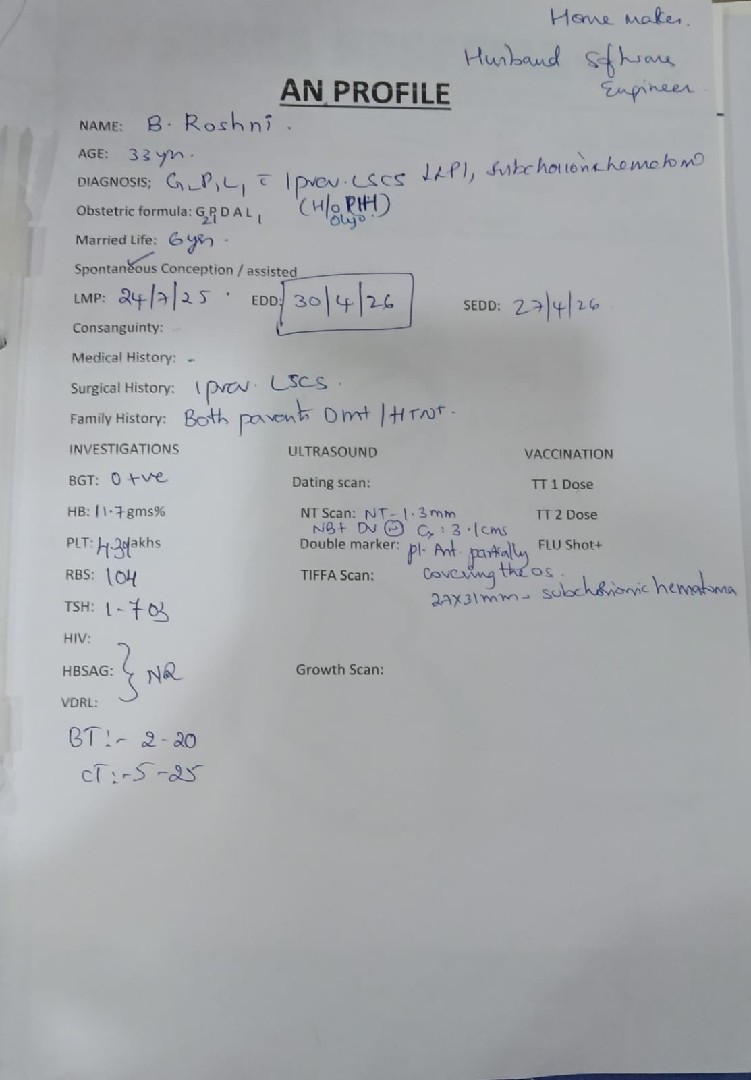 Home maker.
Husband Software
Engineer
AN PROFILE
NAME: B. Roshni.
AGE: 33 yr.
DIAGNOSIS; G2P1L1 c 1 prev. LSCS, subchorionic hematoma
Obstetric formula: G2P1 D A L1 (H/o PIH)
Married Life: 6 yrs.
Spontaneous Conception / assisted
LMP: 24/7/25 EDD: 30/4/26 SEDD: 27/4/26
Consanguinty:
Medical History: -
Surgical History: 1 prev. LSCS.
Family History: Both parents
INVESTIGATIONS ULTRASOUND VACCINATION
BGT: O +ve Dating scan: TT 1 Dose
HB: 11.7 gms% NT Scan: NT - 1.3mm TT 2 Dose
NB+ DV Cx: 3.1cms
PLT: lakhs Double marker: pl- Ant. partially FLU Shot+
RBS: 104 TIFFA Scan: covering the os.
27x31mm - subchorionic hematoma
TSH: 1.703
HIV:
HBSAG: } NR Growth Scan:
VDRL:
BT:- 2-20
CT:-5-25